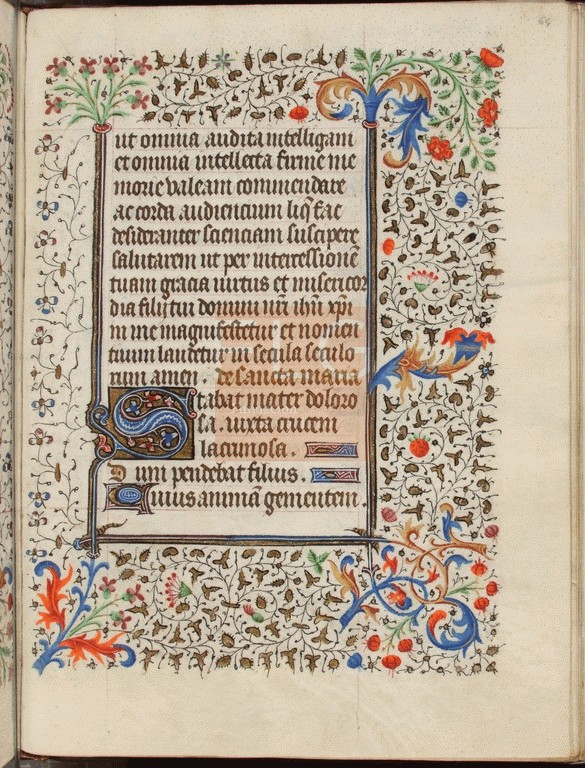 64
ut omnia audita intelligam
et omnia intellecta firme me
morie valeam commendare
ac corda audiencium liq̄ fac
desideranter scienciam suscipere
salutarem ut per intercessionē
tuam gracia virtus et misericor
dia filij tui domini nr̄i ih̄u xp̄i
in me magnifestetur et nomen
tuum laudetur in secula seculo
rum amen. de sancta maria
Stabat mater doloro
sa. iuxta crucem
lacrimosa.
Dum pendebat filius.
Cuius animā gementem